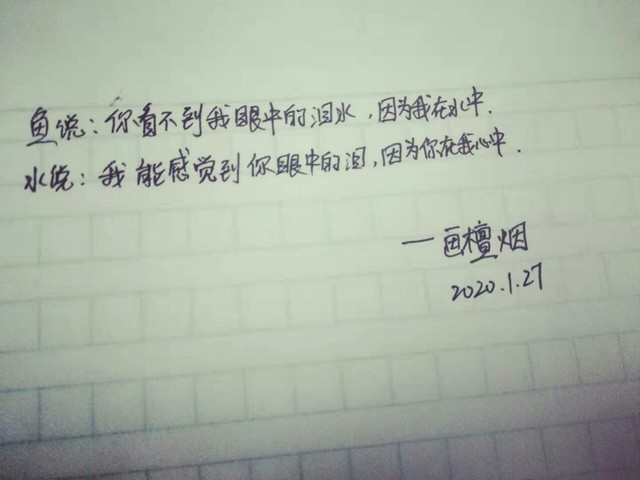 鱼说：你看不到我眼中的泪水，因为我在水中.
水说：我能感觉到你眼中的泪，因为你在我心中.
一画檀烟
2020.1.27